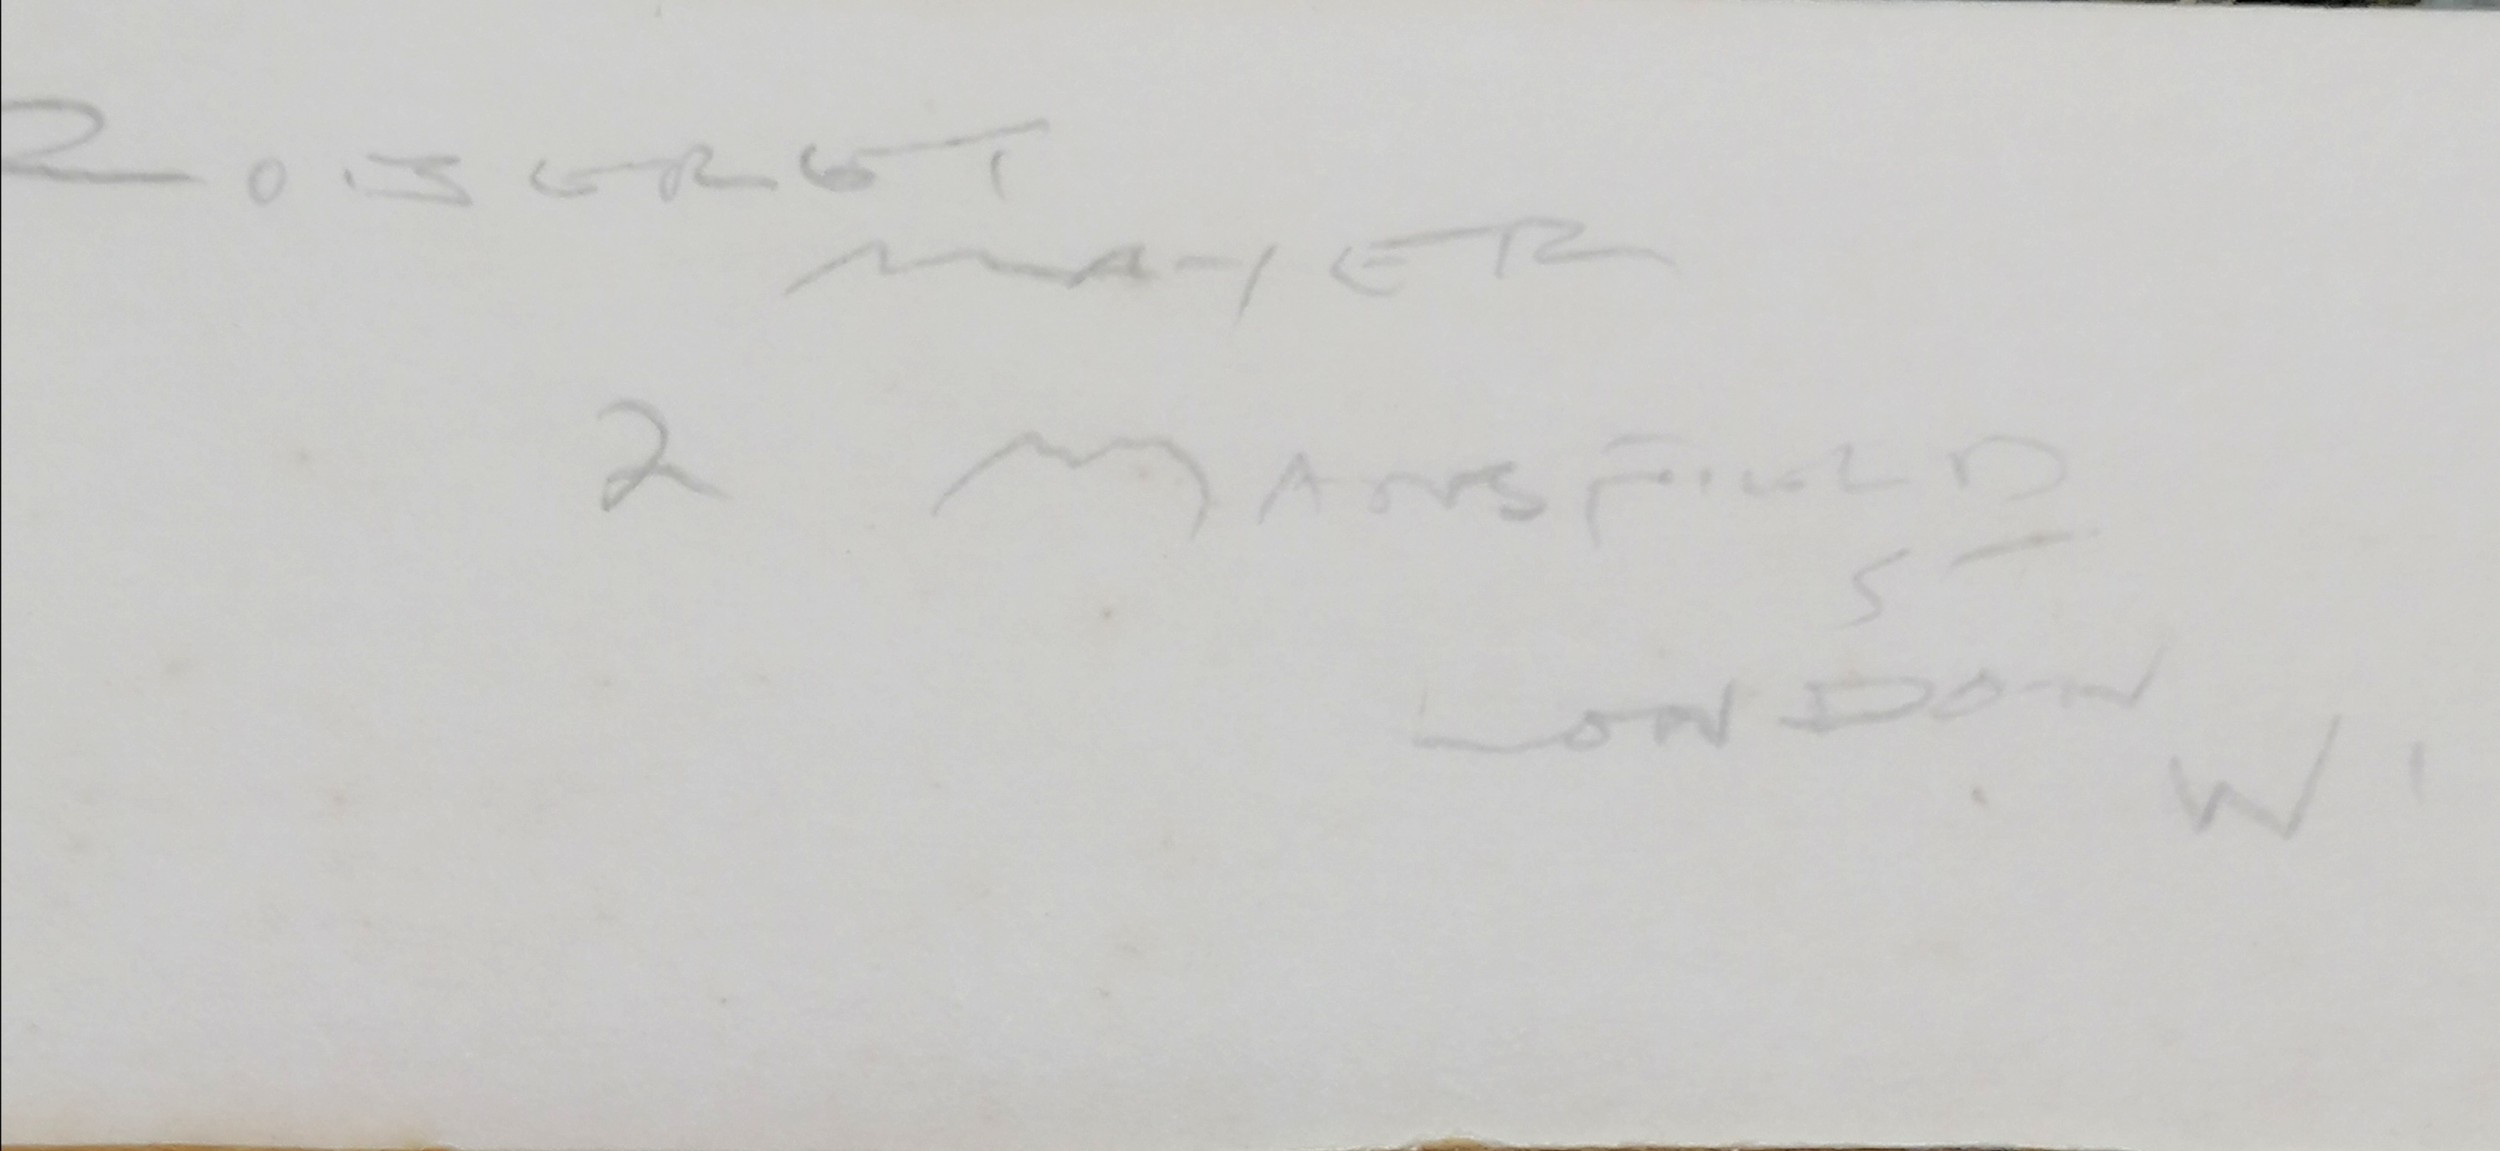 ROBERT
MAYER
2 MANSFIELD
ST
LONDON
W1